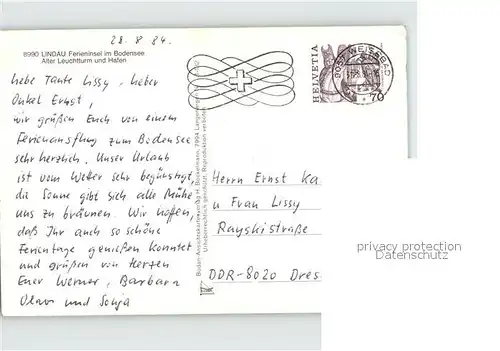 28.8.84.
8990 LINDAU Ferieninsel im Bodensee
Alter Leuchtturm und Hafen
Liebe Tante Lissy, lieber
Onkel Ernst,
wir grüßen Euch von einem
Ferienausflug zum Bodensee
sehr herzlich. Unser Urlaub
ist vom Wetter sehr begünstigt,
die Sonne gibt sich alle Mühe
uns zu bräunen. Wir hoffen,
daß Ihr auch so schöne
Ferientage genießen konntet
und grüßen von Herzen
Euer Werner, Barbara
Olav und Sonja
HELVETIA
9057 WEISSBAD
70
Herrn Ernst Ka
u Frau Lissy
Rayskistraße
DDR-8020 Dres
privacy protection
Datenschutz